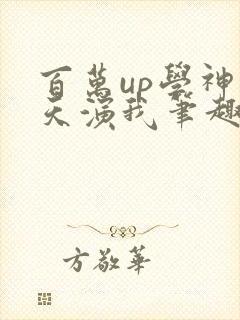 百萬up學神
天演我筆趣
方敬華